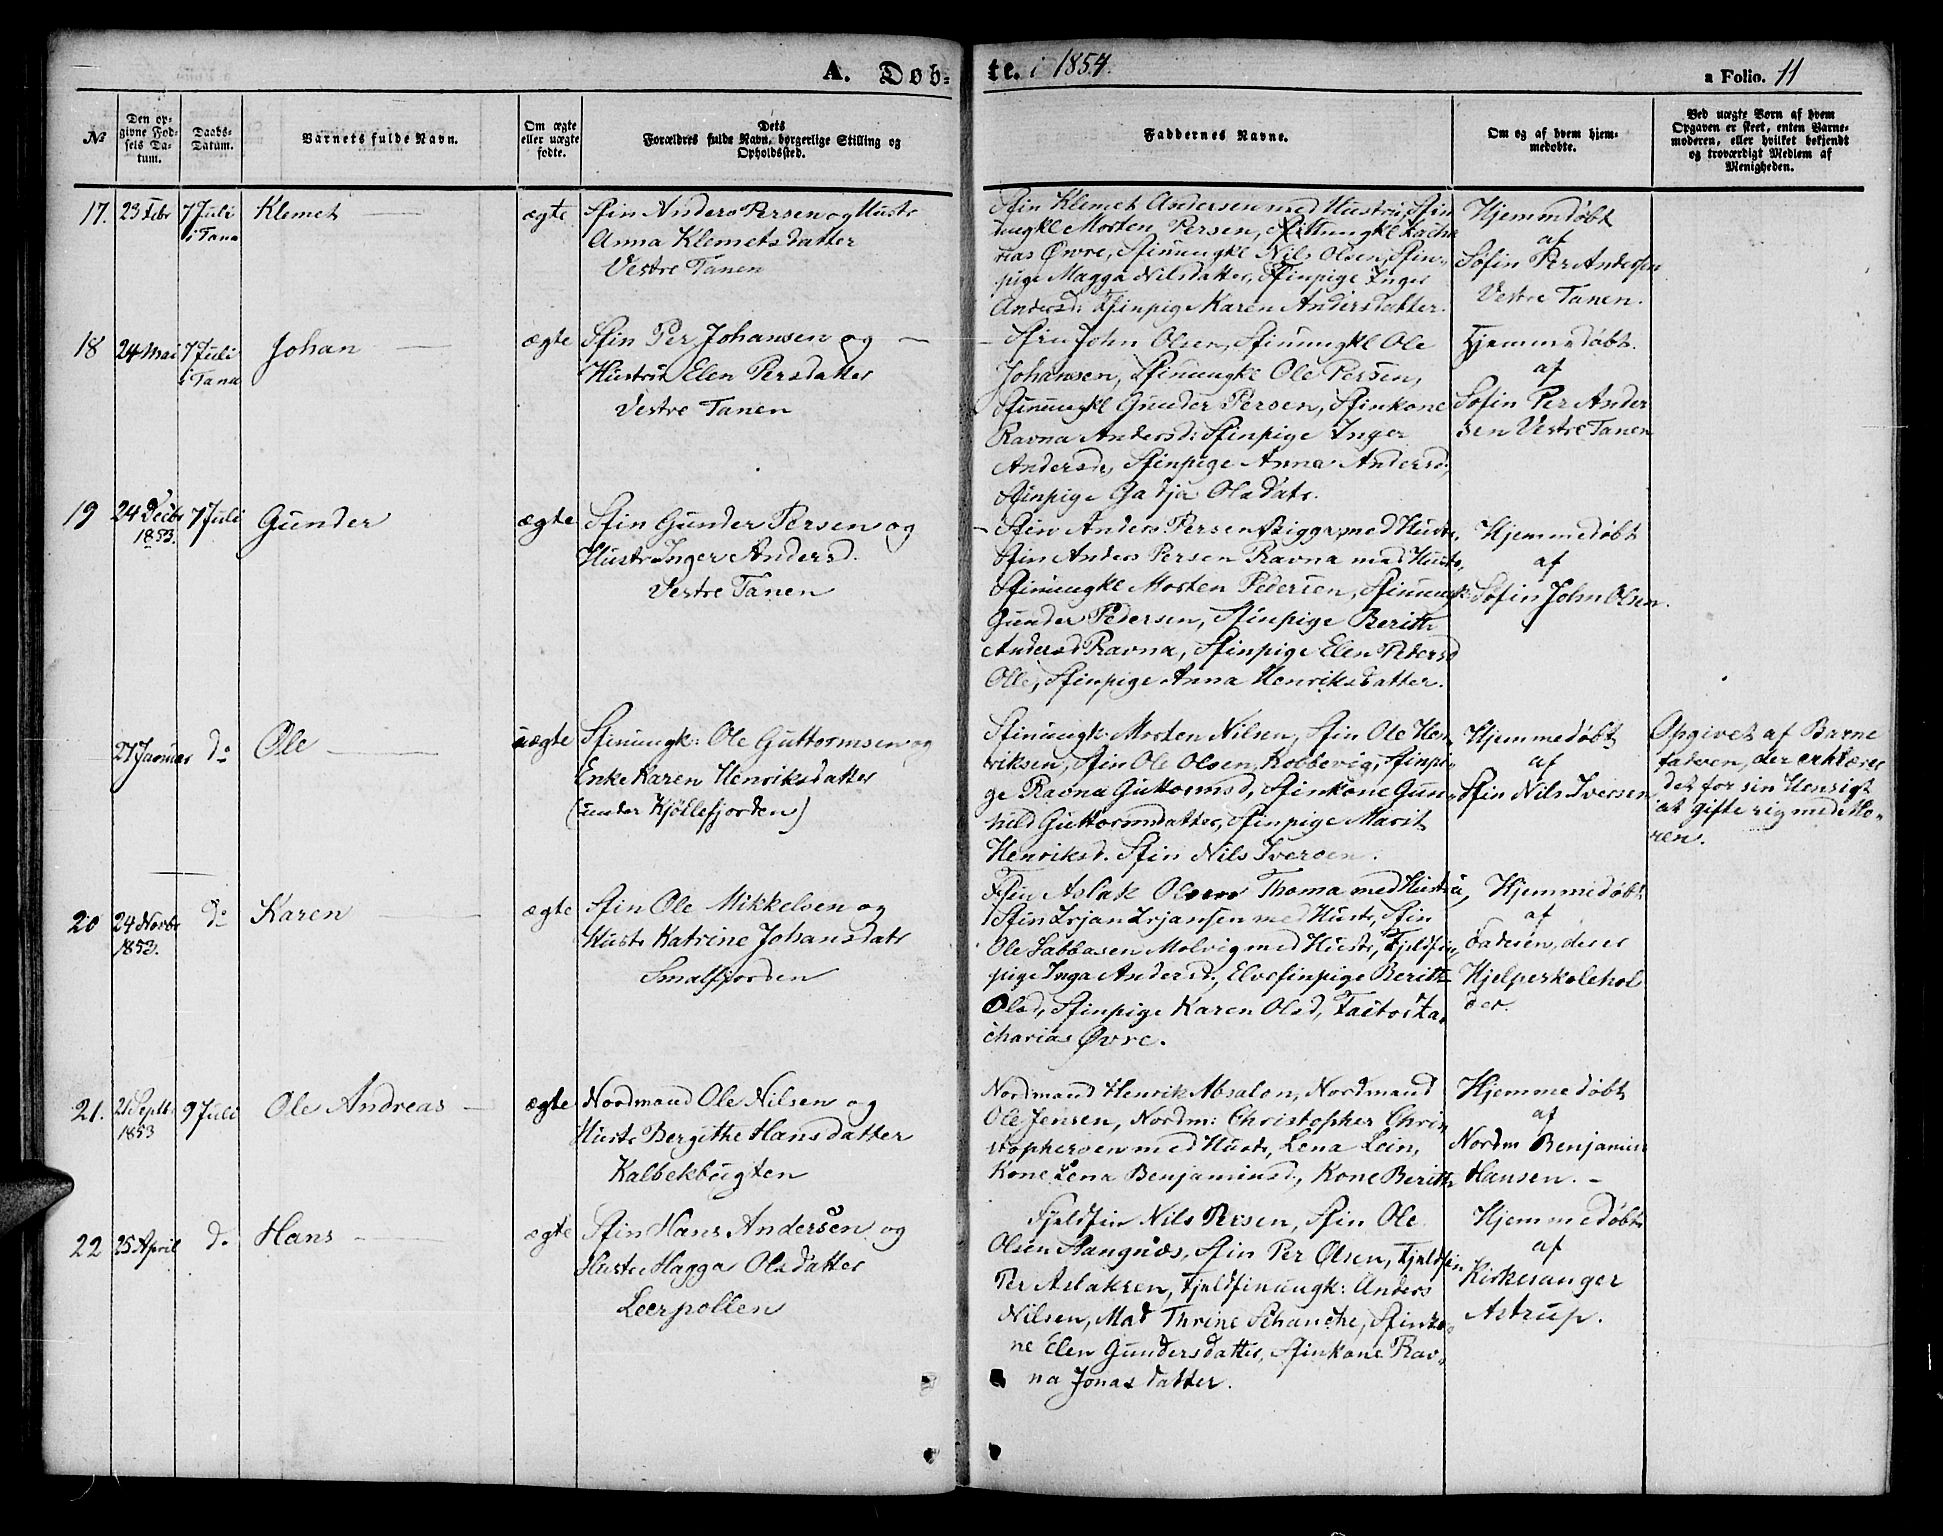 A. Døb-
te. i 1854.
a Folio. 11
№
Den op-
givne Fød-
sels Da-
tum.
Daabs-
Datum.
Barnets fulde Navn.
Om ægte
eller uægte
fødte.
Dets
Forældres fulde Navn, borgerlige Stilling og
Opholdssted.
Faddernes Navne.
Om og af hvem hjem-
medøbte.
Ved uægte Børn af hvem
Opgaven er skeet, enten Barne-
moderen, eller hvilket bekjendt
og troværdigt Medlem af
Menigheden.
17.
23 Febr
7 Juli
i Tana
Klemet
ægte
Sfin Anders Persen og Hustr
Anna Klemetsdatter
Vestre Tanen
Sfin Klemet Andersen med Hustru, Sfin
ungkl Morten Persen, Zacha
rias Øvre, Sfinungkl Nils Olsen, Sfin-
pige Magga Nilsdatter, Sfinpige Inger
Andersd: Sfinpige Karen Andersdatter.
Hjemmdøbt
af
Søfin Per Andersen
Vestre Tanen.
18
24 Mai
7 Juli
i Tana
Johan
ægte
Sfin Per Johansen og
Hustru Elen Persdatter
Vestre Tanen
Sfin John Olsen, Sfinungkl Ole
Johansen, Sfinungkl Ole Persen,
Sfinungkl Gunder Persen, Sfinkone
Ravna Andersd: Sfinpige Inger
Andersd, Sfinpige Anna Andersd,
Sfinpige Gadja Olsdatr.
Hjemmedøbt.
af
Søfin Per Ander
sen Vestre Tanen
19
24 Decbr
1853.
7 Juli
Gunder
ægte
Sfin Gunder Persen og
Hustr Inger Andersd.
Vestre Tanen
Sfin Anders Persen Bigga, med Hustr,
Sfin Anders Persen Ravna med Hustr,
Sfinungkl Morten Pedersen, Sfinungk:
Gunder Pedersen, Sfinpige Berith
Andersd Ravna, Sfinpige Elen Pedersd
Olle, Sfinpige Anna Henriksdatter.
Hjemmedøbt
af
Søfin John Olsen.
27 Januar
do
Ole
uægte
Sfinungk: Ole Guttormsen og
Enke Karen Henriksdatter
(under Kjøllefjorden)
Sfinungk: Morten Nilsen, Sfin Ole Hen
riksen, Sfin Ole Olsen, Kobbevig, Sfinpi-
ge Ravna Guttormsd, Sfinkone Gun-
hild Guttormsdatter, Sfinpige Marit
Henriksd. Sfin Nils Iversen.
Hjemmedøbt
af
Sfin Nils Iversen
Opgivet af Barne
faderen, der erklærer
det for sin Hensigt
at gifte sig med Mo-
ren.
20
24 Novbr
1853.
do
Karen
ægte
Sfin Ole Mikkelsen og
Hustr Katrine Johansdatr
Smalfjorden
Sfin Aslak Olsen Thoma med Hustru,
Sfin Irjan Irjansen med Hustr, Sfin
Ole Sabbasen Molvig med Hustr, Fjeldfin-
pige Inga Andersd, Elvefinpige Berith
Olsd, Sfinpige Karen Olsd, Za-
charias Øvre.
Hjemmedøbt
af
Faderen, der er
Hjelpeskolehol
der.
21.
21 Septbr
1853
9 Juli
Ole Andreas
ægte
Nordmand Ole Nilsen og
Hustr Bergithe Hansdatter
Kalbekbugten
Nordmand Henrik Absalon, Nordmand
Ole Jensen, Nordm: Christopher Chri
stophersen med Hustr, Lena Lein,
Kone Lena Benjaminsd, Kone Berith
Hjemmedøbt
af
Nordm Benjamin
Hansen. -
22
25 April
do
Hans
ægte
Sfin Hans Andersen og
Hustr Magga Olsdatter
Leerpollen
Fjeldfin Nils Persen, Sfin Ole
Olsen Stangnæs, Sfin Per Olsen, Fjeldfin
Per Aslaksen, Fjeldfinungk: Anders
Nilsen, Mad Thrine Schanche, Sfinko-
ne Elen Gundersdatter, Sfinkone Rav-
na Jonasdatter.
Hjemmedøbt
af
Kirkesanger
Astrup.